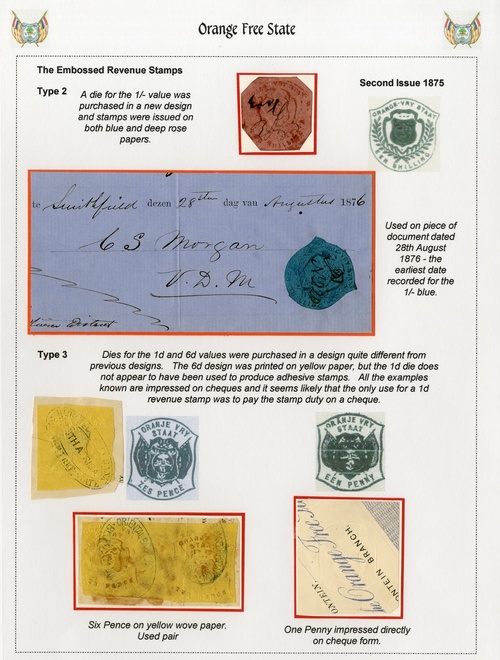 Orange Free State
The Embossed Revenue Stamps
Type 2
A die for the 1/- value was
purchased in a new design
and stamps were issued on
both blue and deep rose
papers.
Second Issue 1875
ORANGE-VRY STAAT
EEN SHILLING
te Smithfield dezen 28sten dag van Augustus 1876
C S Morgan
V. D. M
Used on piece of
document dated
28th August
1876 - the
earliest date
recorded for the
1/- blue.
Type 3
Dies for the 1d and 6d values were purchased in a design quite different from
previous designs. The 6d design was printed on yellow paper, but the 1d die does
not appear to have been used to produce adhesive stamps. All the examples
known are impressed on cheques and it seems likely that the only use for a 1d
revenue stamp was to pay the stamp duty on a cheque.
ORANJE VRY
STAAT
ZES PENCE
ORANJE VRY
STAAT
EEN PENNY
Six Pence on yellow wove paper.
Used pair
Orange Free
ONTEIN BRANCH.
ONTEIN,
One Penny impressed directly
on cheque form.